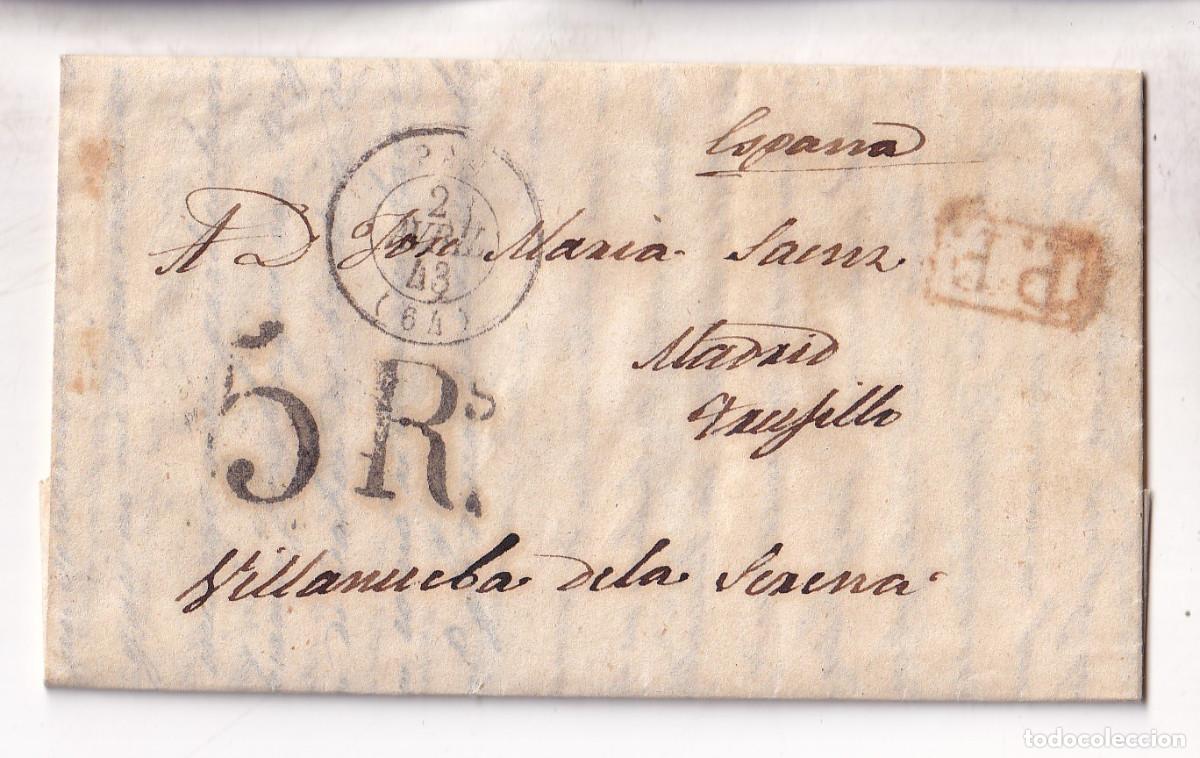 España
2
AVRIL
43
(64)
A D José Maria Saenz
P.P.
Madrid
Trujillo
5 Rs.
Villanueba de la Serena
todocoleccion